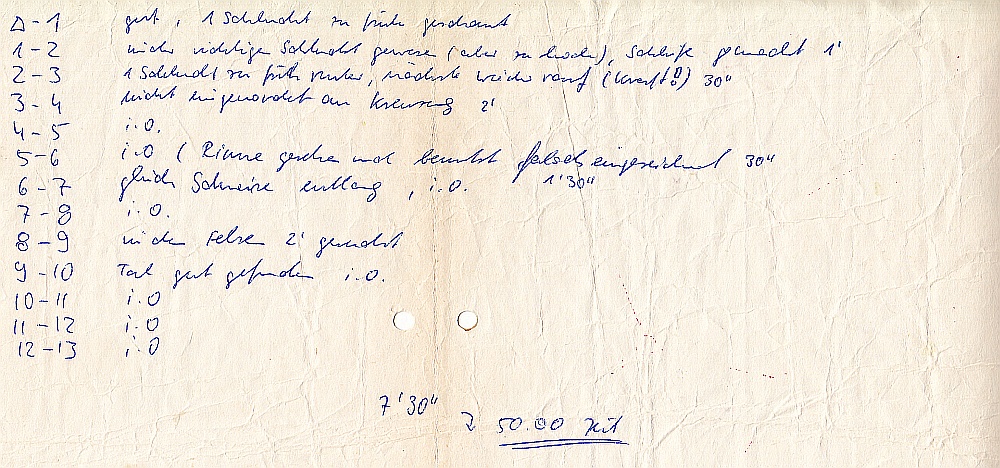 Δ-1 gut, 1 Schlucht zu früh geschaut
1-2 in der richtigen Schlucht gewesen (aber zu hoch), Schleife gemacht 1'
2-3 1 Schlucht zu früh runter, nächste wieder rauf (Kraft!!) 30"
3-4 nicht eingenordet an Kreuzung 2'
4-5 i.O.
5-6 i.O (Rinne gesehen und benutzt falsch eingezeichnet 30"
6-7 gleich Schneise entlang, i.O. 1'30"
7-8 i.O.
8-9 in den Felsen 2' gesucht
9-10 Tal gut gefunden i.O.
10-11 i.O
11-12 i.O
12-13 i.O
7'30"
50.00 Zeit